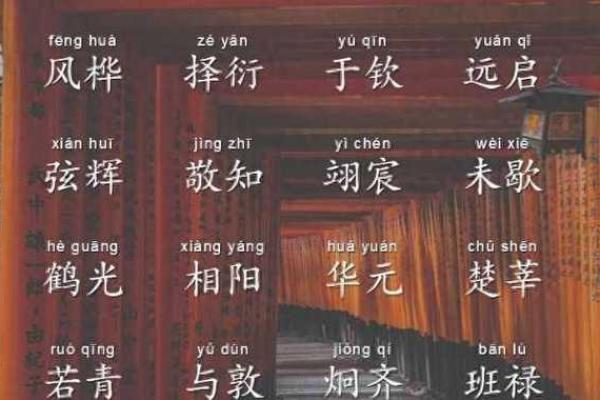 fēng huà zé yǎn yú qīn yuǎn qǐ
风桦 择衍 于钦 远启
xián huī jìng zhī yì chén wèi xiē
弦辉 敬知 翊宸 未歇
hè guāng xiàng yáng huá yuán chǔ shēn
鹤光 相阳 华元 楚莘
ruò qīng yǔ dūn jiǒng qí bān lù
若青 与敦 炯齐 班禄